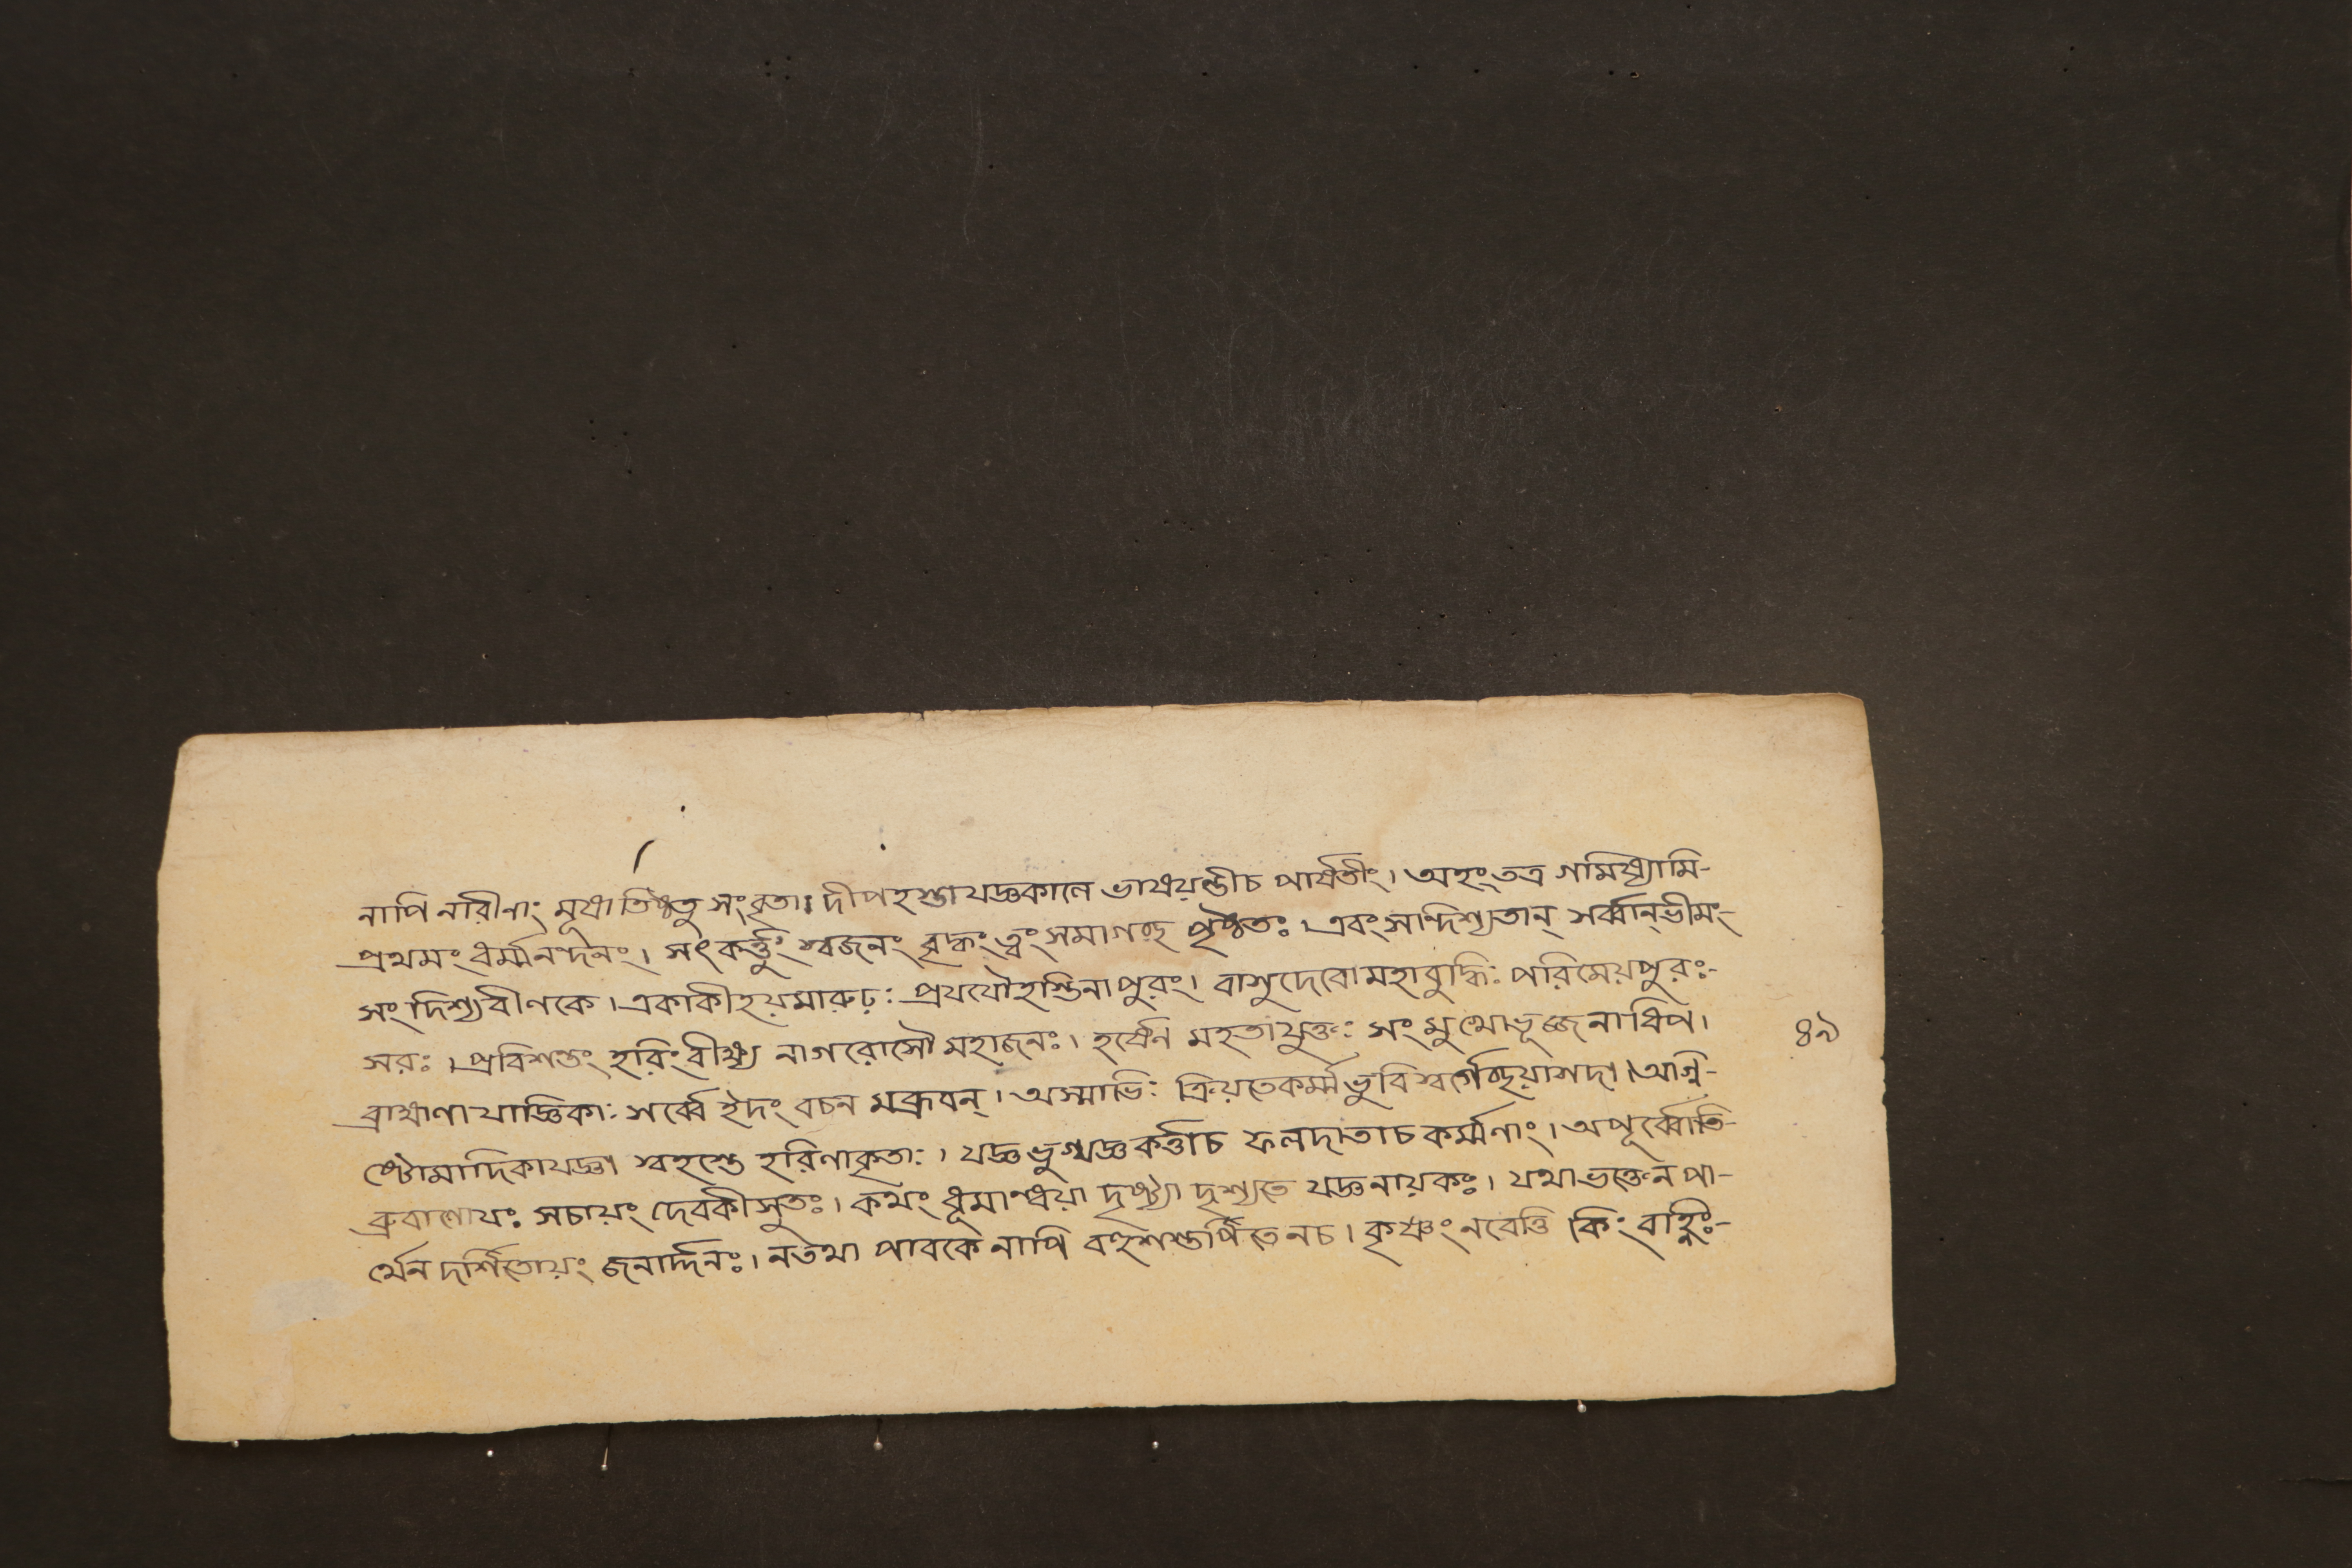 নাপি নারীনাং মূষাতিষ্ঠতু সংবৃতা। দীপহস্তা যজ্ঞকালে ভাষয়ন্তীচ পার্ষতীং। অহং তত্র গমিষ্যামি-
প্রথমং ধর্ম্মনন্দনং। সৎকর্ত্তুং শ্বজনং বৃদ্ধং ত্বং সমাগচ্ছ পৃষ্ঠতঃ। এবং সান্দিশ্যতান্ সর্ব্বান্ ভীমং-
সংদিশ্যবীণকে। একাকীহয়মারুঢ়ঃ প্রযযৌহস্তিনাপুরং। বাসুদেবোমহাবুদ্ধিঃ পরিমেয়পুরঃ-
সরঃ। প্রবিশন্তং হরিং বীক্ষ্য নাগরোসৌ মহাজনঃ। হর্ষেন মহতাযুক্তঃ সংমুখোভূজ্জনাধিপ।
ব্রাহ্মণা যাজ্ঞিকাঃ সর্ব্বে ইদং বচন মব্রুবন্। অস্মাভিঃ ক্রিয়তেকর্ম্ম ভুবিস্বর্গেচ্ছয়াশদা। অগ্নি-
ষ্টোমাদিকাযজ্ঞা শ্বহস্তে হরিণাকৃতাঃ। যজ্ঞভুগ্যজ্ঞকর্ত্তাচ ফলদাতাচ কর্ম্মণাং। অপূর্ব্বোতি-
ব্রুবাণোযঃ সচায়ং দেবকীসুতঃ। কথং ধূমান্ধয়া দৃষ্ট্যা দৃশ্যতে যজ্ঞনায়কঃ। যথাভক্তেন পা-
র্থেন দর্শিতোয়ং জনার্দ্দনঃ। নতথা পাবকে নাপি বহুশস্তর্পিতেনচ। কৃষ্ণং নবেত্তি কিং বহ্নিঃ-
৪৯